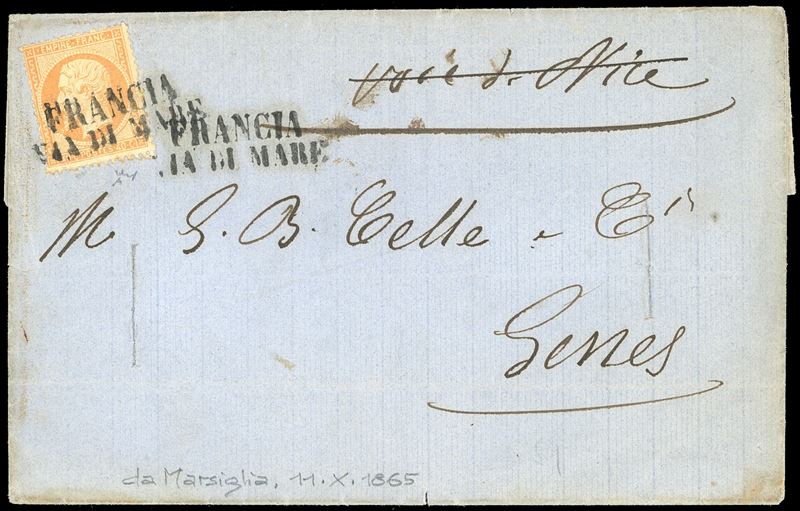 EMPIRE FRANC
voie de Nice
FRANCIA
VIA DI MARE
FRANCIA
VIA DI MARE
M G. B. Celle e Cie
Gênes
da Marsiglia, 11.X.1865